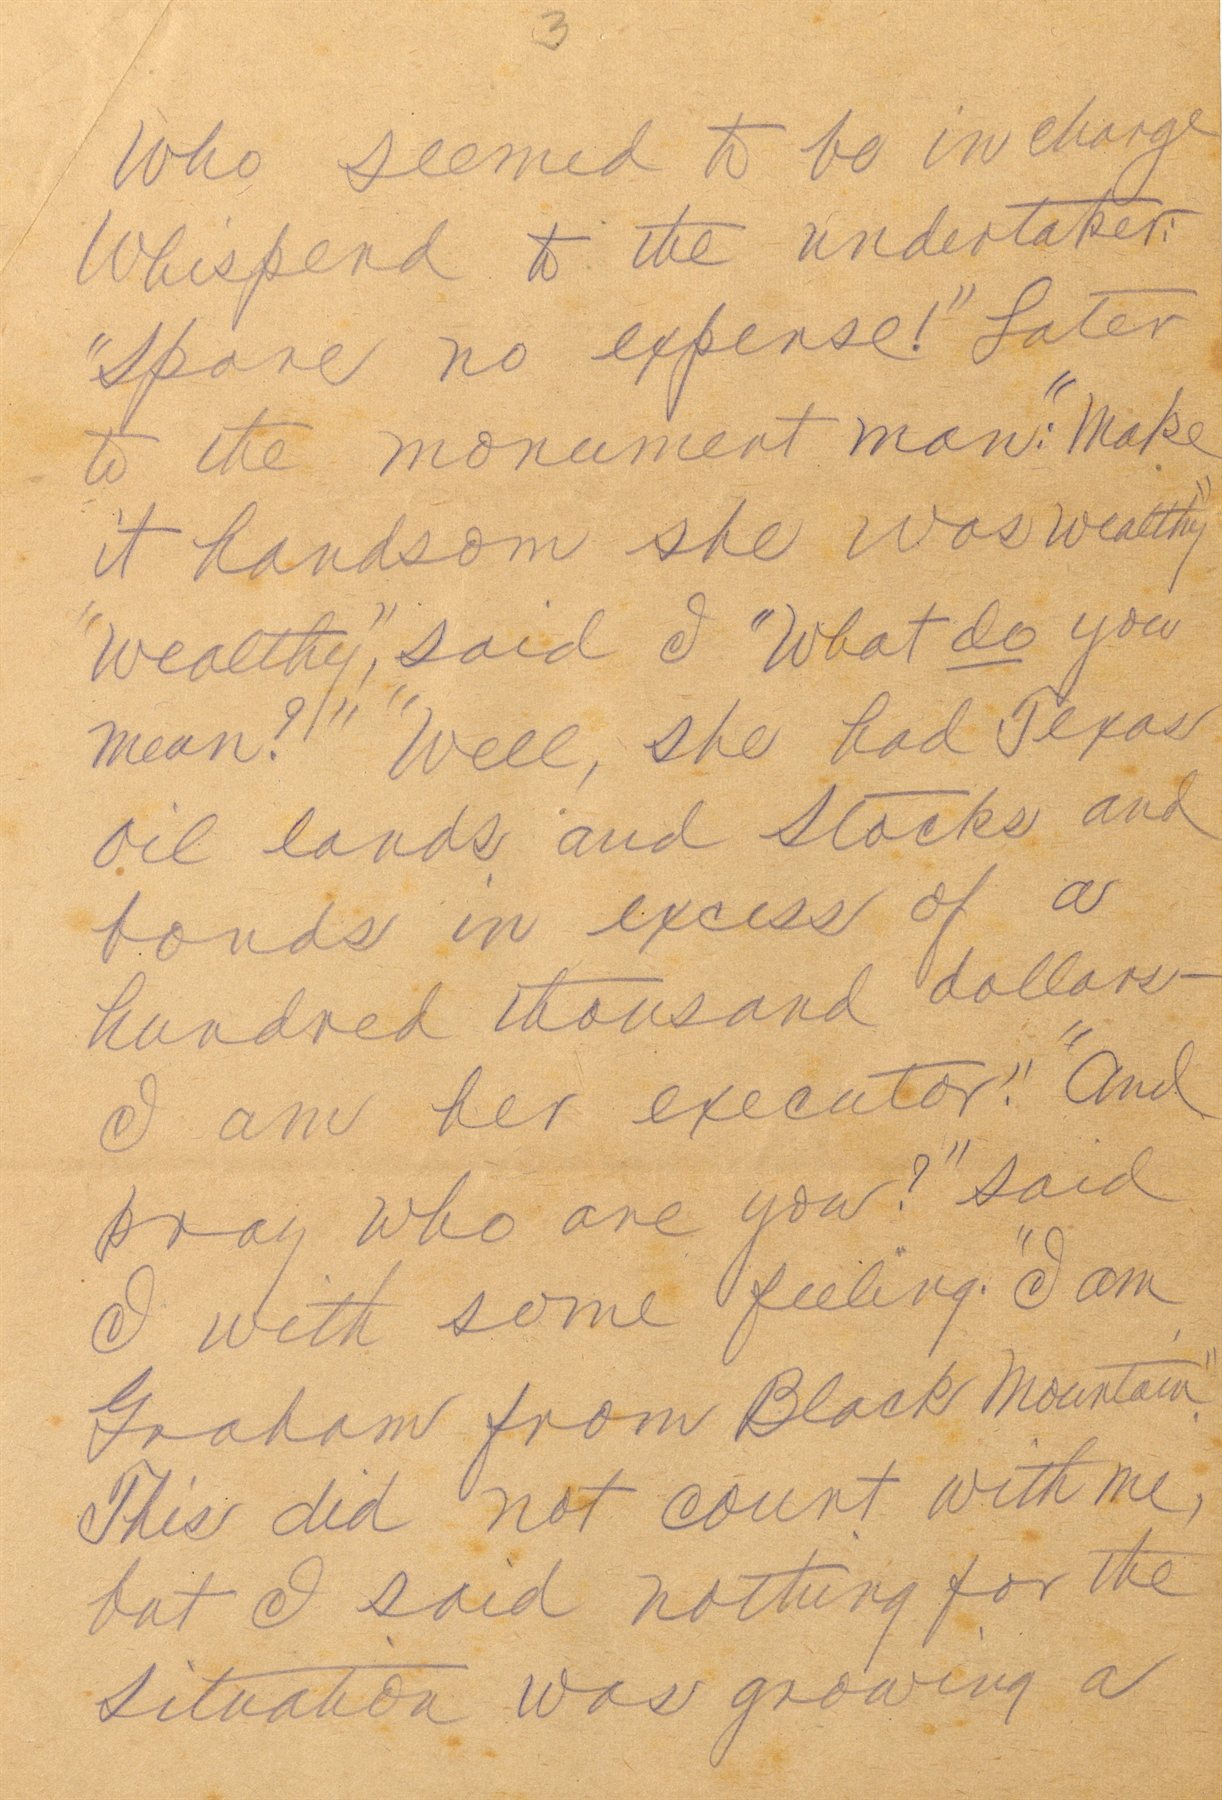 3
Who seemed to be in charge
Whisperd to the undertaker:
"Spare no expense!" Later
to the monument man: "Make
it handsom she was wealthy"
"Wealthy", said I "What do you
mean?" "Well, she had Texas
oil lands and Stocks and
bonds in excess of a
hundred thousand dollars—
I am her executor." "And
pray who are you?" said
I with some feeling. "I am
Graham from Black Mountain".
This did not count with me,
but I said nothing for the
situation was growing a